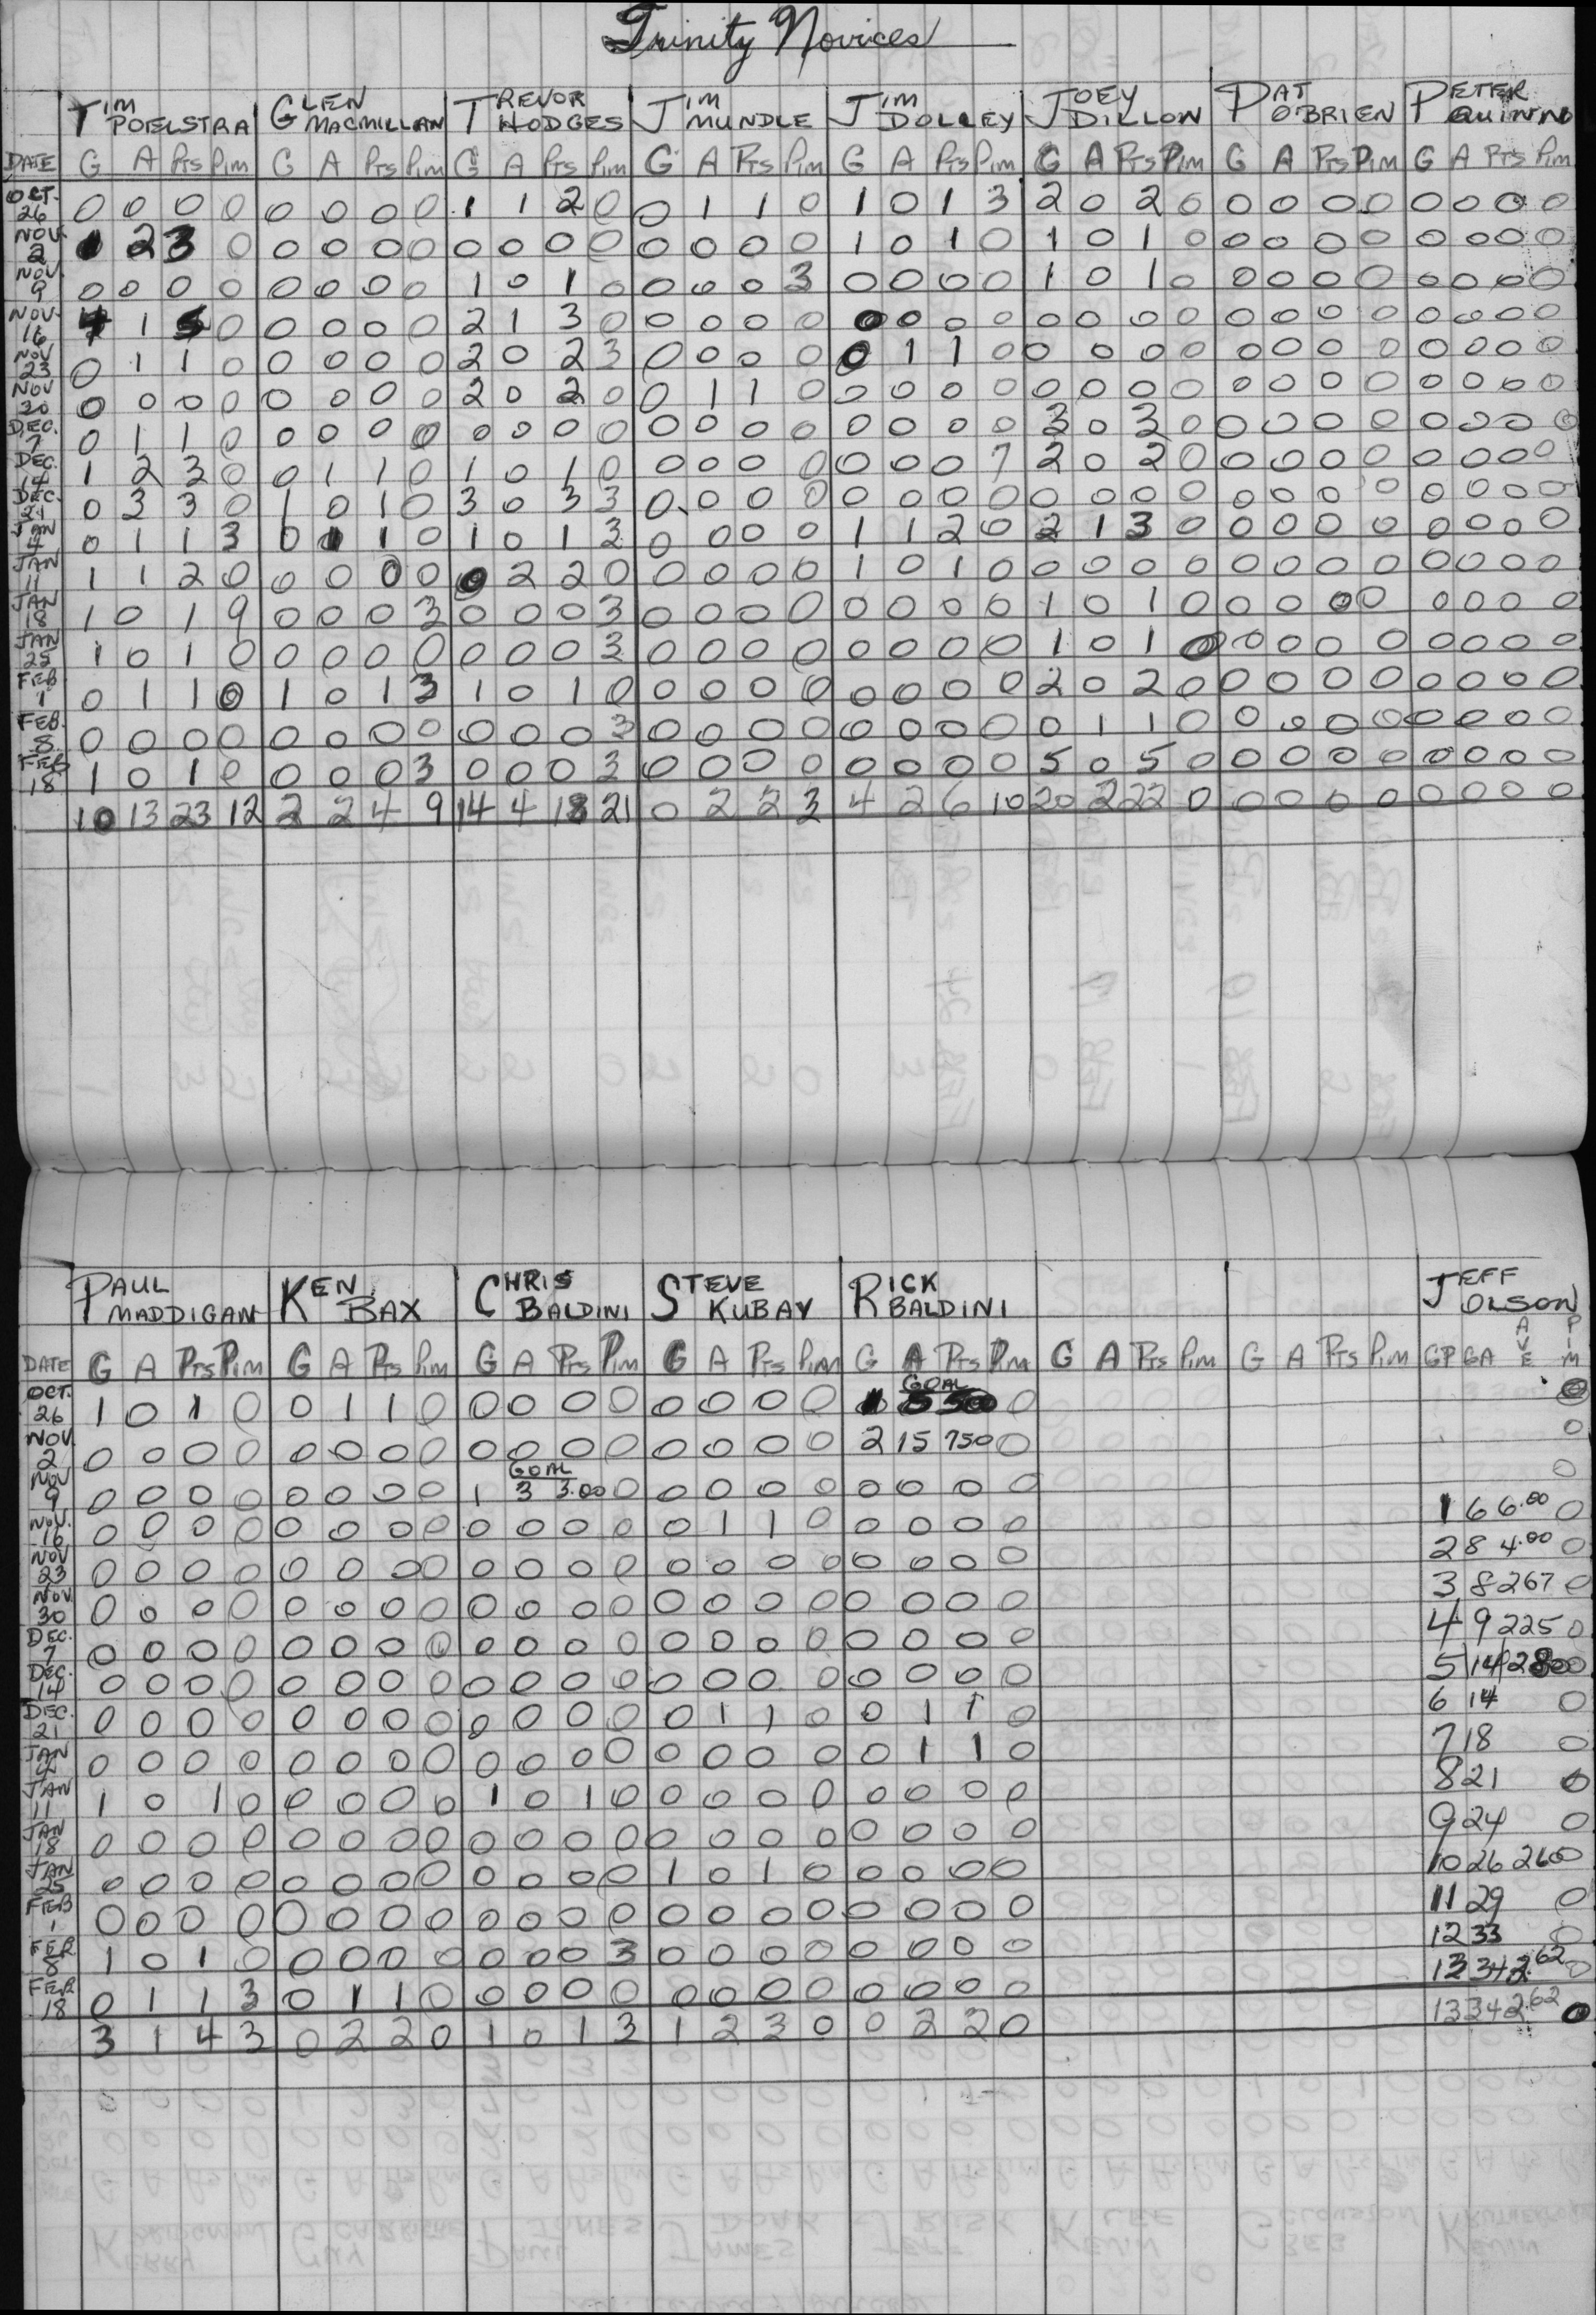 Trinity Novices
TIM POELSTRA GLEN MACMILLAN TREVOR HODGES JIM MUNDLE JIM DOLLEY JOEY DILLON PAT O'BRIEN PETER QUINN
DATE G A Pts Pim G A Pts Pim G A Pts Pim G A Pts Pim G A Pts Pim G A Pts Pim G A Pts Pim G A Pts Pim
OCT. 26 0 0 0 0 0 0 0 0 1 1 2 0 0 1 1 0 1 0 1 3 2 0 2 0 0 0 0 0 0 0 0 0
NOV. 2 1 2 3 0 0 0 0 0 0 0 0 0 0 0 0 0 1 0 1 0 1 0 1 0 0 0 0 0 0 0 0 0
NOV. 9 0 0 0 0 0 0 0 0 1 0 1 0 0 0 0 3 0 0 0 0 1 0 1 0 0 0 0 0 0 0 0 0
NOV. 16 4 1 5 0 0 0 0 0 2 1 3 0 0 0 0 0 0 0 0 0 0 0 0 0 0 0 0 0 0 0 0 0
NOV 23 0 1 1 0 0 0 0 0 2 0 2 3 0 0 0 0 0 1 1 0 0 0 0 0 0 0 0 0 0 0 0 0
NOV 30 0 0 0 0 0 0 0 0 2 0 2 0 0 1 1 0 0 0 0 0 0 0 0 0 0 0 0 0 0 0 0 0
DEC. 7 0 1 1 0 0 0 0 0 0 0 0 0 0 0 0 0 0 0 0 0 3 0 3 0 0 0 0 0 0 0 0 0
DEC. 14 1 2 3 0 0 1 1 0 1 0 1 0 0 0 0 0 0 0 0 7 2 0 2 0 0 0 0 0 0 0 0 0
DEC. 21 0 3 3 0 1 0 1 0 3 0 3 3 0 0 0 0 0 0 0 0 0 0 0 0 0 0 0 0 0 0 0 0
JAN 4 0 1 1 3 0 1 1 0 1 0 1 3 0 0 0 0 1 1 2 0 2 1 3 0 0 0 0 0 0 0 0 0
JAN 11 1 1 2 0 0 0 0 0 0 2 2 0 0 0 0 0 1 0 1 0 0 0 0 0 0 0 0 0 0 0 0 0
JAN 18 1 0 1 9 0 0 0 3 0 0 0 3 0 0 0 0 0 0 0 0 1 0 1 0 0 0 0 0 0 0 0 0
JAN 25 1 0 1 0 0 0 0 0 0 0 0 3 0 0 0 0 0 0 0 0 1 0 1 0 0 0 0 0 0 0 0 0
FEB 1 0 1 1 0 1 0 1 3 1 0 1 0 0 0 0 0 0 0 0 0 2 0 2 0 0 0 0 0 0 0 0 0
FEB. 8 0 0 0 0 0 0 0 0 0 0 0 3 0 0 0 0 0 0 0 0 0 1 1 0 0 0 0 0 0 0 0 0
FEB 18 1 0 1 0 0 0 0 3 0 0 0 3 0 0 0 0 0 0 0 0 5 0 5 0 0 0 0 0 0 0 0 0
10 13 23 12 2 2 4 9 14 4 18 21 0 2 2 3 4 2 6 10 20 2 22 0 0 0 0 0 0 0 0 0
PAUL MADDIGAN KEN BAX CHRIS BALDINI STEVE KUBAY RICK BALDINI JEFF OLSON
DATE G A Pts Pim G A Pts Pim G A Pts Pim G A Pts Pim G A Pts Pim G A Pts Pim G A Pts Pim GP GA AVE PIM
GOAL
OCT. 26 1 0 1 0 0 1 1 0 0 0 0 0 0 0 0 0 0 0
NOV. 2 0 0 0 0 0 0 0 0 0 0 0 0 0 0 0 0 2 15 750 0 0
GOAL
NOV 9 0 0 0 0 0 0 0 0 1 3 3.00 0 0 0 0 0 0 0 0 0 0
NOV. 16 0 0 0 0 0 0 0 0 0 0 0 0 0 1 1 0 0 0 0 0 1 6 6.00 0
NOV 23 0 0 0 0 0 0 0 0 0 0 0 0 0 0 0 0 0 0 0 0 2 8 4.00 0
NOV. 30 0 0 0 0 0 0 0 0 0 0 0 0 0 0 0 0 0 0 0 0 3 8 267 0
DEC. 7 0 0 0 0 0 0 0 0 0 0 0 0 0 0 0 0 0 0 0 0 4 9 225 0
DEC. 14 0 0 0 0 0 0 0 0 0 0 0 0 0 0 0 0 0 0 0 0 5 14 280 0
DEC. 21 0 0 0 0 0 0 0 0 0 0 0 0 0 1 1 0 0 1 1 0 6 14 0
JAN 4 0 0 0 0 0 0 0 0 0 0 0 0 0 0 0 0 0 1 1 0 7 18 0
JAN 11 1 0 1 0 0 0 0 0 1 0 1 0 0 0 0 0 0 0 0 0 8 21 0
JAN 18 0 0 0 0 0 0 0 0 0 0 0 0 0 0 0 0 0 0 0 0 9 24 0
JAN 25 0 0 0 0 0 0 0 0 0 0 0 0 1 0 1 0 0 0 0 0 10 26 260 0
FEB 1 0 0 0 0 0 0 0 0 0 0 0 0 0 0 0 0 0 0 0 0 11 29 0
FEB. 8 1 0 1 0 0 0 0 0 0 0 0 3 0 0 0 0 0 0 0 0 12 33 0
FEB 18 0 1 1 3 0 1 1 0 0 0 0 0 0 0 0 0 0 0 0 0 13 34 2.62 0
3 1 4 3 0 2 2 0 1 0 1 3 1 2 3 0 0 2 2 0 13 34 2.62 0